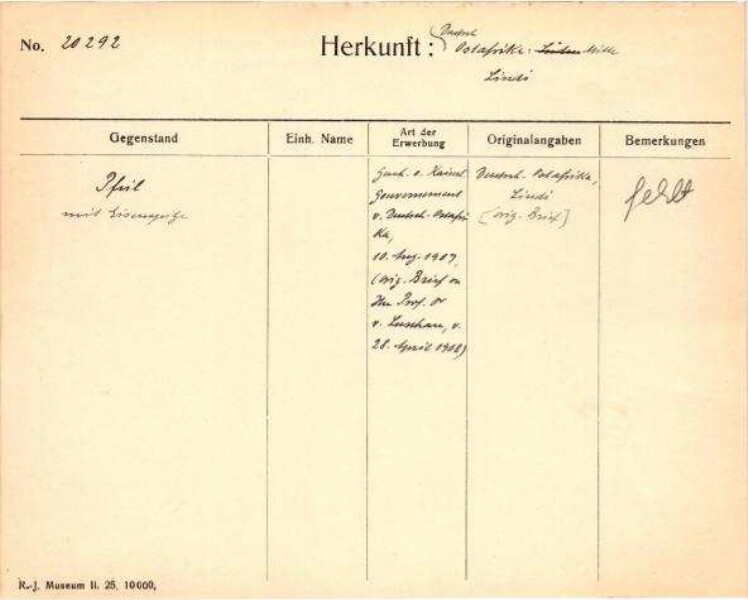 No. 20292
Herkunft: Deutsch
Ostafrika. Mitte
Lindi
Gegenstand
Einh. Name
Art der
Erwerbung
Originalangaben
Bemerkungen
Pfeil
mit Eisenspitze
Gesch. v. Kaiserl.
Gouvernement
v. Deutsch-Ostafri
ka,
10. Aug. 1907,
(orig. Brief an
Hr. Prof. Dr
v. Luschan, v.
28. April 1908)
Deutsch-Ostafrika,
Lindi
[orig. Brief]
fehlt
R.-J. Museum II. 25. 10000,